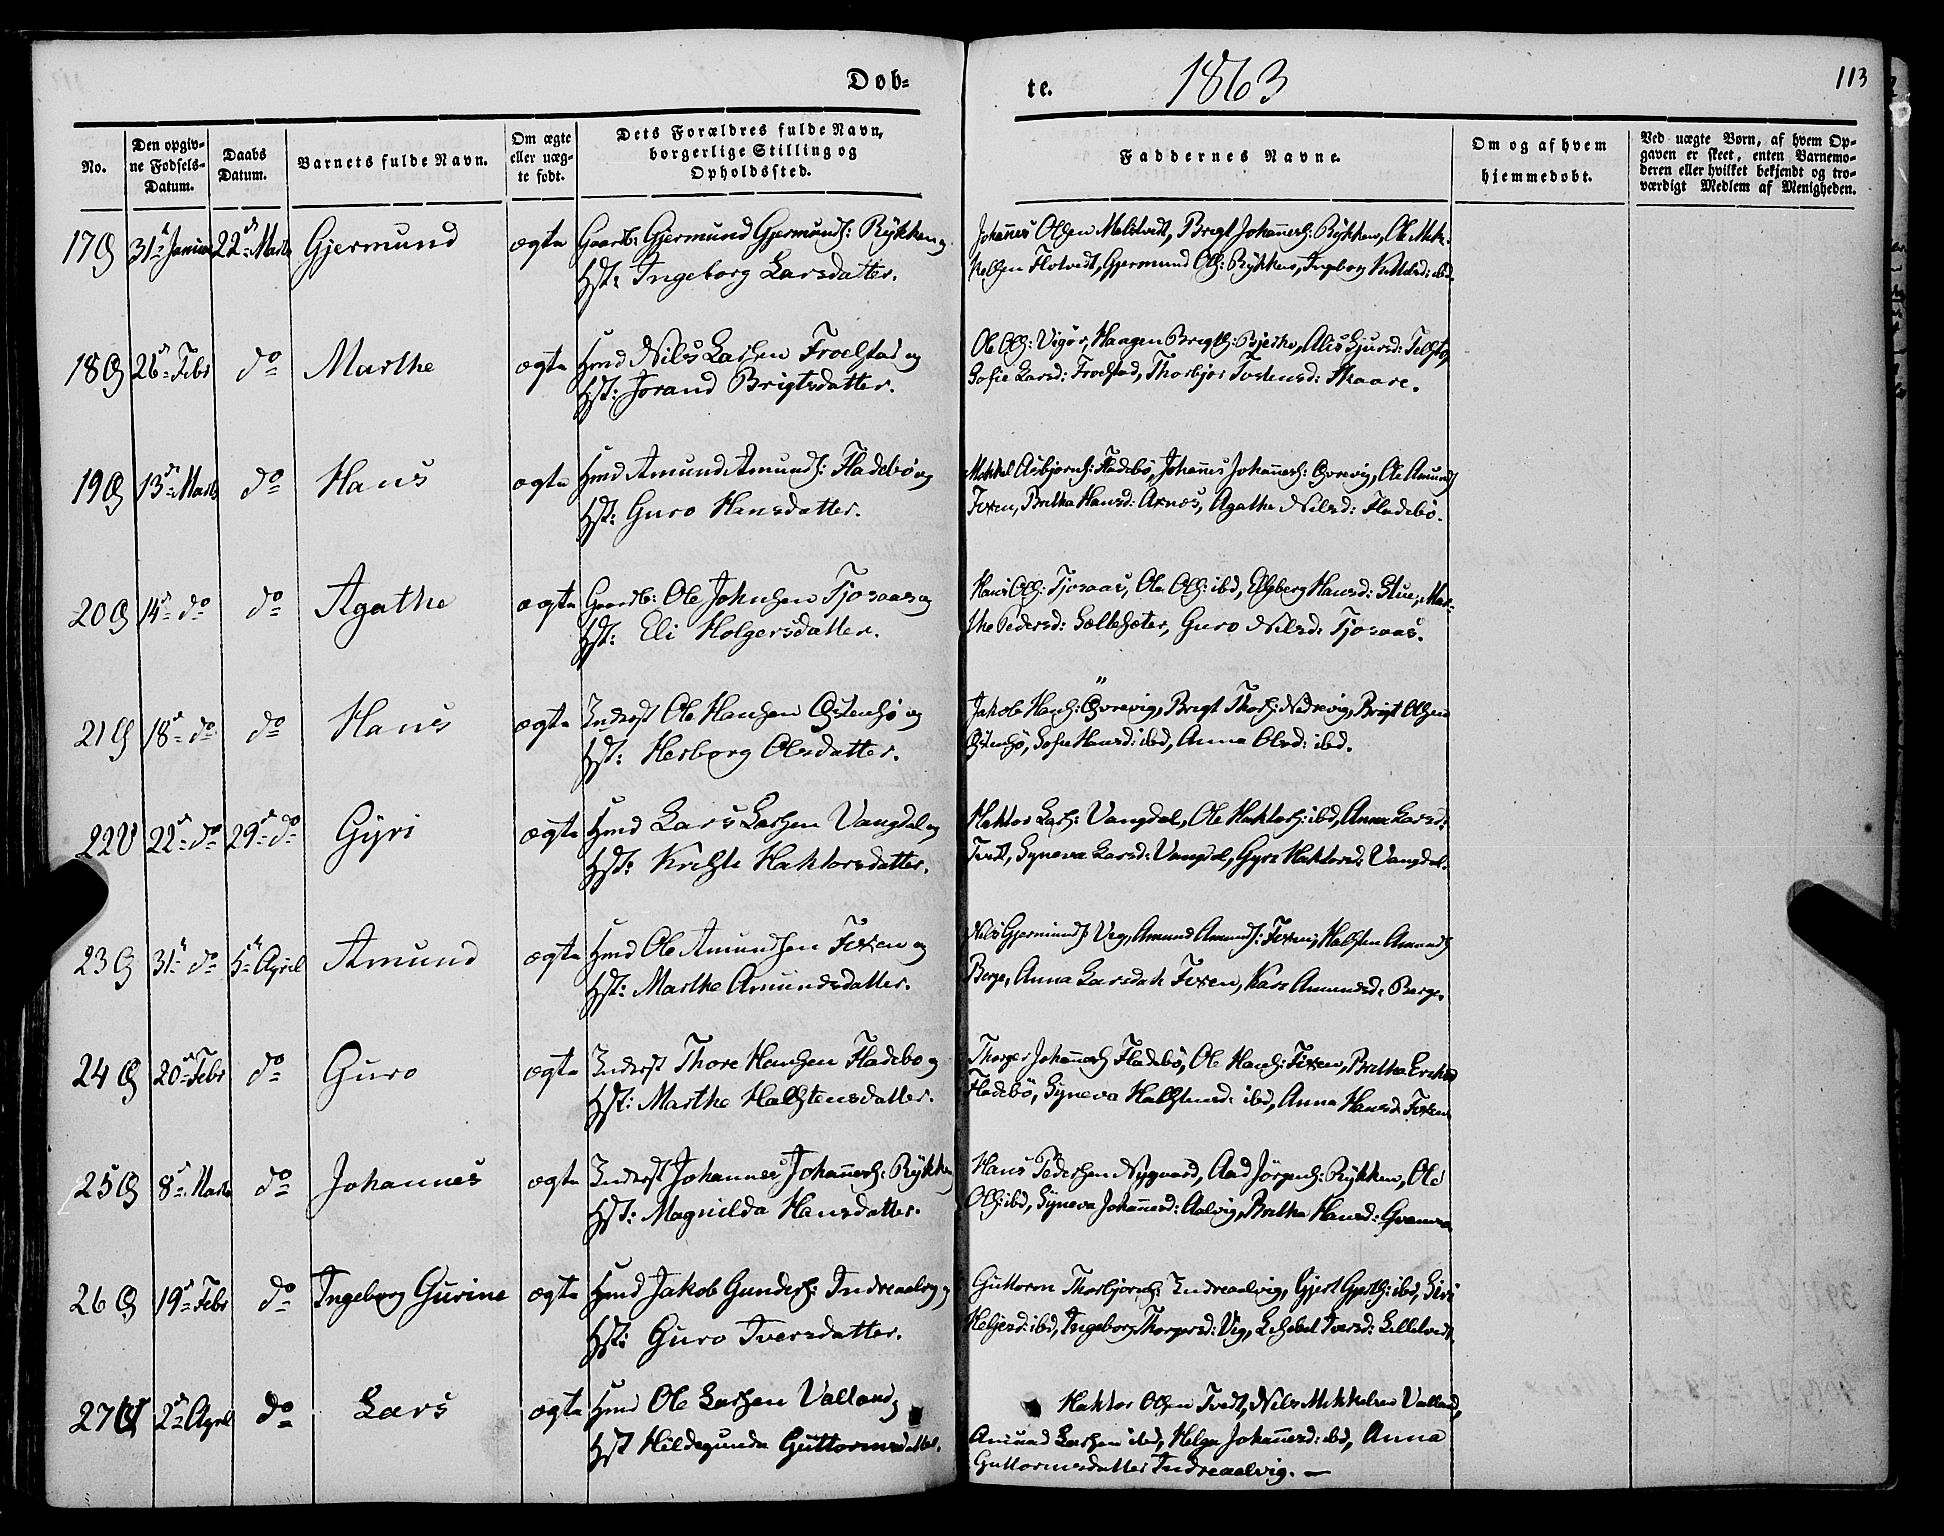 Døb-
te.
1863
113
No.
Den opgiv-
ne Fødsels-
Datum.
Daabs
Datum.
Barnets fulde Navn.
Om ægte
eller uæg-
te født.
Dets Forældres fulde Navn,
borgerlige Stilling og
Opholdssted.
Faddernes Navne.
Om og af hvem
hjemmedøbt.
Ved uægte Børn, af hvem Op-
gaven er skeet, enten Barnemo-
deren eller hvilket bekjendt og tro-
værdigt Medlem af Menigheden.
17 Ø 31te Januar 22de Marts Gjermund ægte Gaardb: Gjermund Gjermunds: Rykken og
Hst: Ingeborg Larsdatter.
Johannes Olsen Melstvedt, Brigt Johannes: Rykken, Ole Mik-
kelsen Flotvedt, Gjermund Ols: Rykken, Ingeborg Kittelsd: ibd.
18 Ø 26de Febr do Marthe ægte Hmd Nils Larsen Froestad og
Hst: Jorand Brigtsdatter.
Ole Ols: Vigør, Haagen Brigts: Bjerke, Alis Sjursd:
Sofie Larsd: Froestad, Thorbjør Tostensd: Skaare.
19 Ø 13de Marts do Hans ægte Hmd Amund Amunds: Fladebø og
Hst: Guro Hansdatter.
Mikkel Asbjørns: Fladebø, Johannes Johannes: Øvrevig, Ole Amunds
Fixen, Britha Hansd: Axnes, Agathe Nilsd: Fladebø.
20 Ø 14de do do Agathe ægte Gaardb: Ole Johnsen Tjosaas og
Hst: Eli Holgersdatter.
Hans Ols: Tjosaas, Ole Ols: ibd, Elsberg Hansd: Stue, Mar-
the Pedersd: Sæltesæter, Guro Nilsd: Tjosaas.
21 Ø 18de do do Hans ægte Inderst Ole Hansen Østensø og
Hst: Herborg Olsdatter.
Jakob Hans: Øvrevig, Brigt Thors: Nedrevig, Brigt Olsen
Østensø, Sofie Hansd: ibd, Anna Olsd: ibd.
22 V 22de do 29de do Gyri ægte Hmd Lars Larsen Vangdal og
Hst: Kristi Haktorsdatter.
Haktor Lars: Vangdal, Ole Haktors: ibd, Anna Larsd:
Tvedt, Syneva Larsd: Vangdal, Gyri Haktorsd: Vangdal.
23 Ø 31te do 5te April Amund ægte Hmd Ole Amundsen Fixen og
Hst: Marthe Amundsdatter.
Nils Gjermunds Vig, Amund Amunds: Fixen, Halsten Amunds
Berge, Anna Larsdatr Fixen, Kari Amundsd: Berge.
24 Ø 20de Febr do Guro ægte Inderst Thore Hansen Fladebø og
Hst: Marthe Halstensdatter.
Thorger Johannes Fladebø, Ole Hans: Fixen, Britha Eriksd
Fladebø, Syneva Halstensd: ibd, Anna Hansd: Fixen
25 Ø 8de Marts do Johannes ægte Inderst Johannes Johannes: Rykken
Hst: Magnilda Hansdatter.
Hans Pedersen Nygaard, Aad Jørgens: Rykken, Ole
Ols: ibd, Syneva Johannesd: Aalvig, Britha Hansd:
26 Ø 19de Febr do Ingeborg Gurine ægte Hmd Jakob Gunders: Indreaalvig og
Hst: Guro Iversdatter.
Guttorm Thorbjørns: Indreaalvig, Gjert Gjerts: ibd, Siri
Heljesd: ibd, Ingeborg Thorgersd: Vig, Lisabet Iversd: Lilletvedt.
27 V 2de April do Lars ægte Hmd Ole Larsen Valland og
Hst Hildegunda Guttormsdatter.
Haktor Olsen Tvedt, Nils Mikkelsen Valland,
Amund Larsen ibd, Helga Johannesd: ibd, Anna
Guttormsdatter Indreaalvig. —